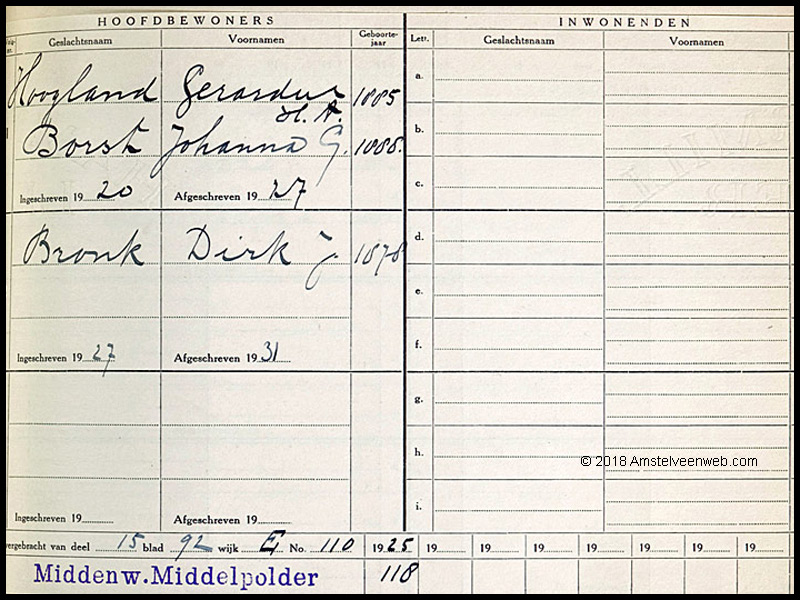 HOOFDBEWONERS INWONENDEN
Geslachtsnaam Voornamen Geboorte-jaar Lett. Geslachtsnaam Voornamen
a.
Hoogland Gerardus 1885
H. A.
b.
Borst Johanna G. 1888.
c.
Ingeschreven 19 20 Afgeschreven 19 27
d.
Bronk Dirk J. 1878
e.
f.
Ingeschreven 19 27 Afgeschreven 19 31
g.
h.
© 2018 Amstelveenweb.com
i.
Ingeschreven 19 Afgeschreven 19
vergebracht van deel 15 blad 92 wijk E No. 110 1925 19 19 19 19 19 19 19
Middenw. Middelpolder 118